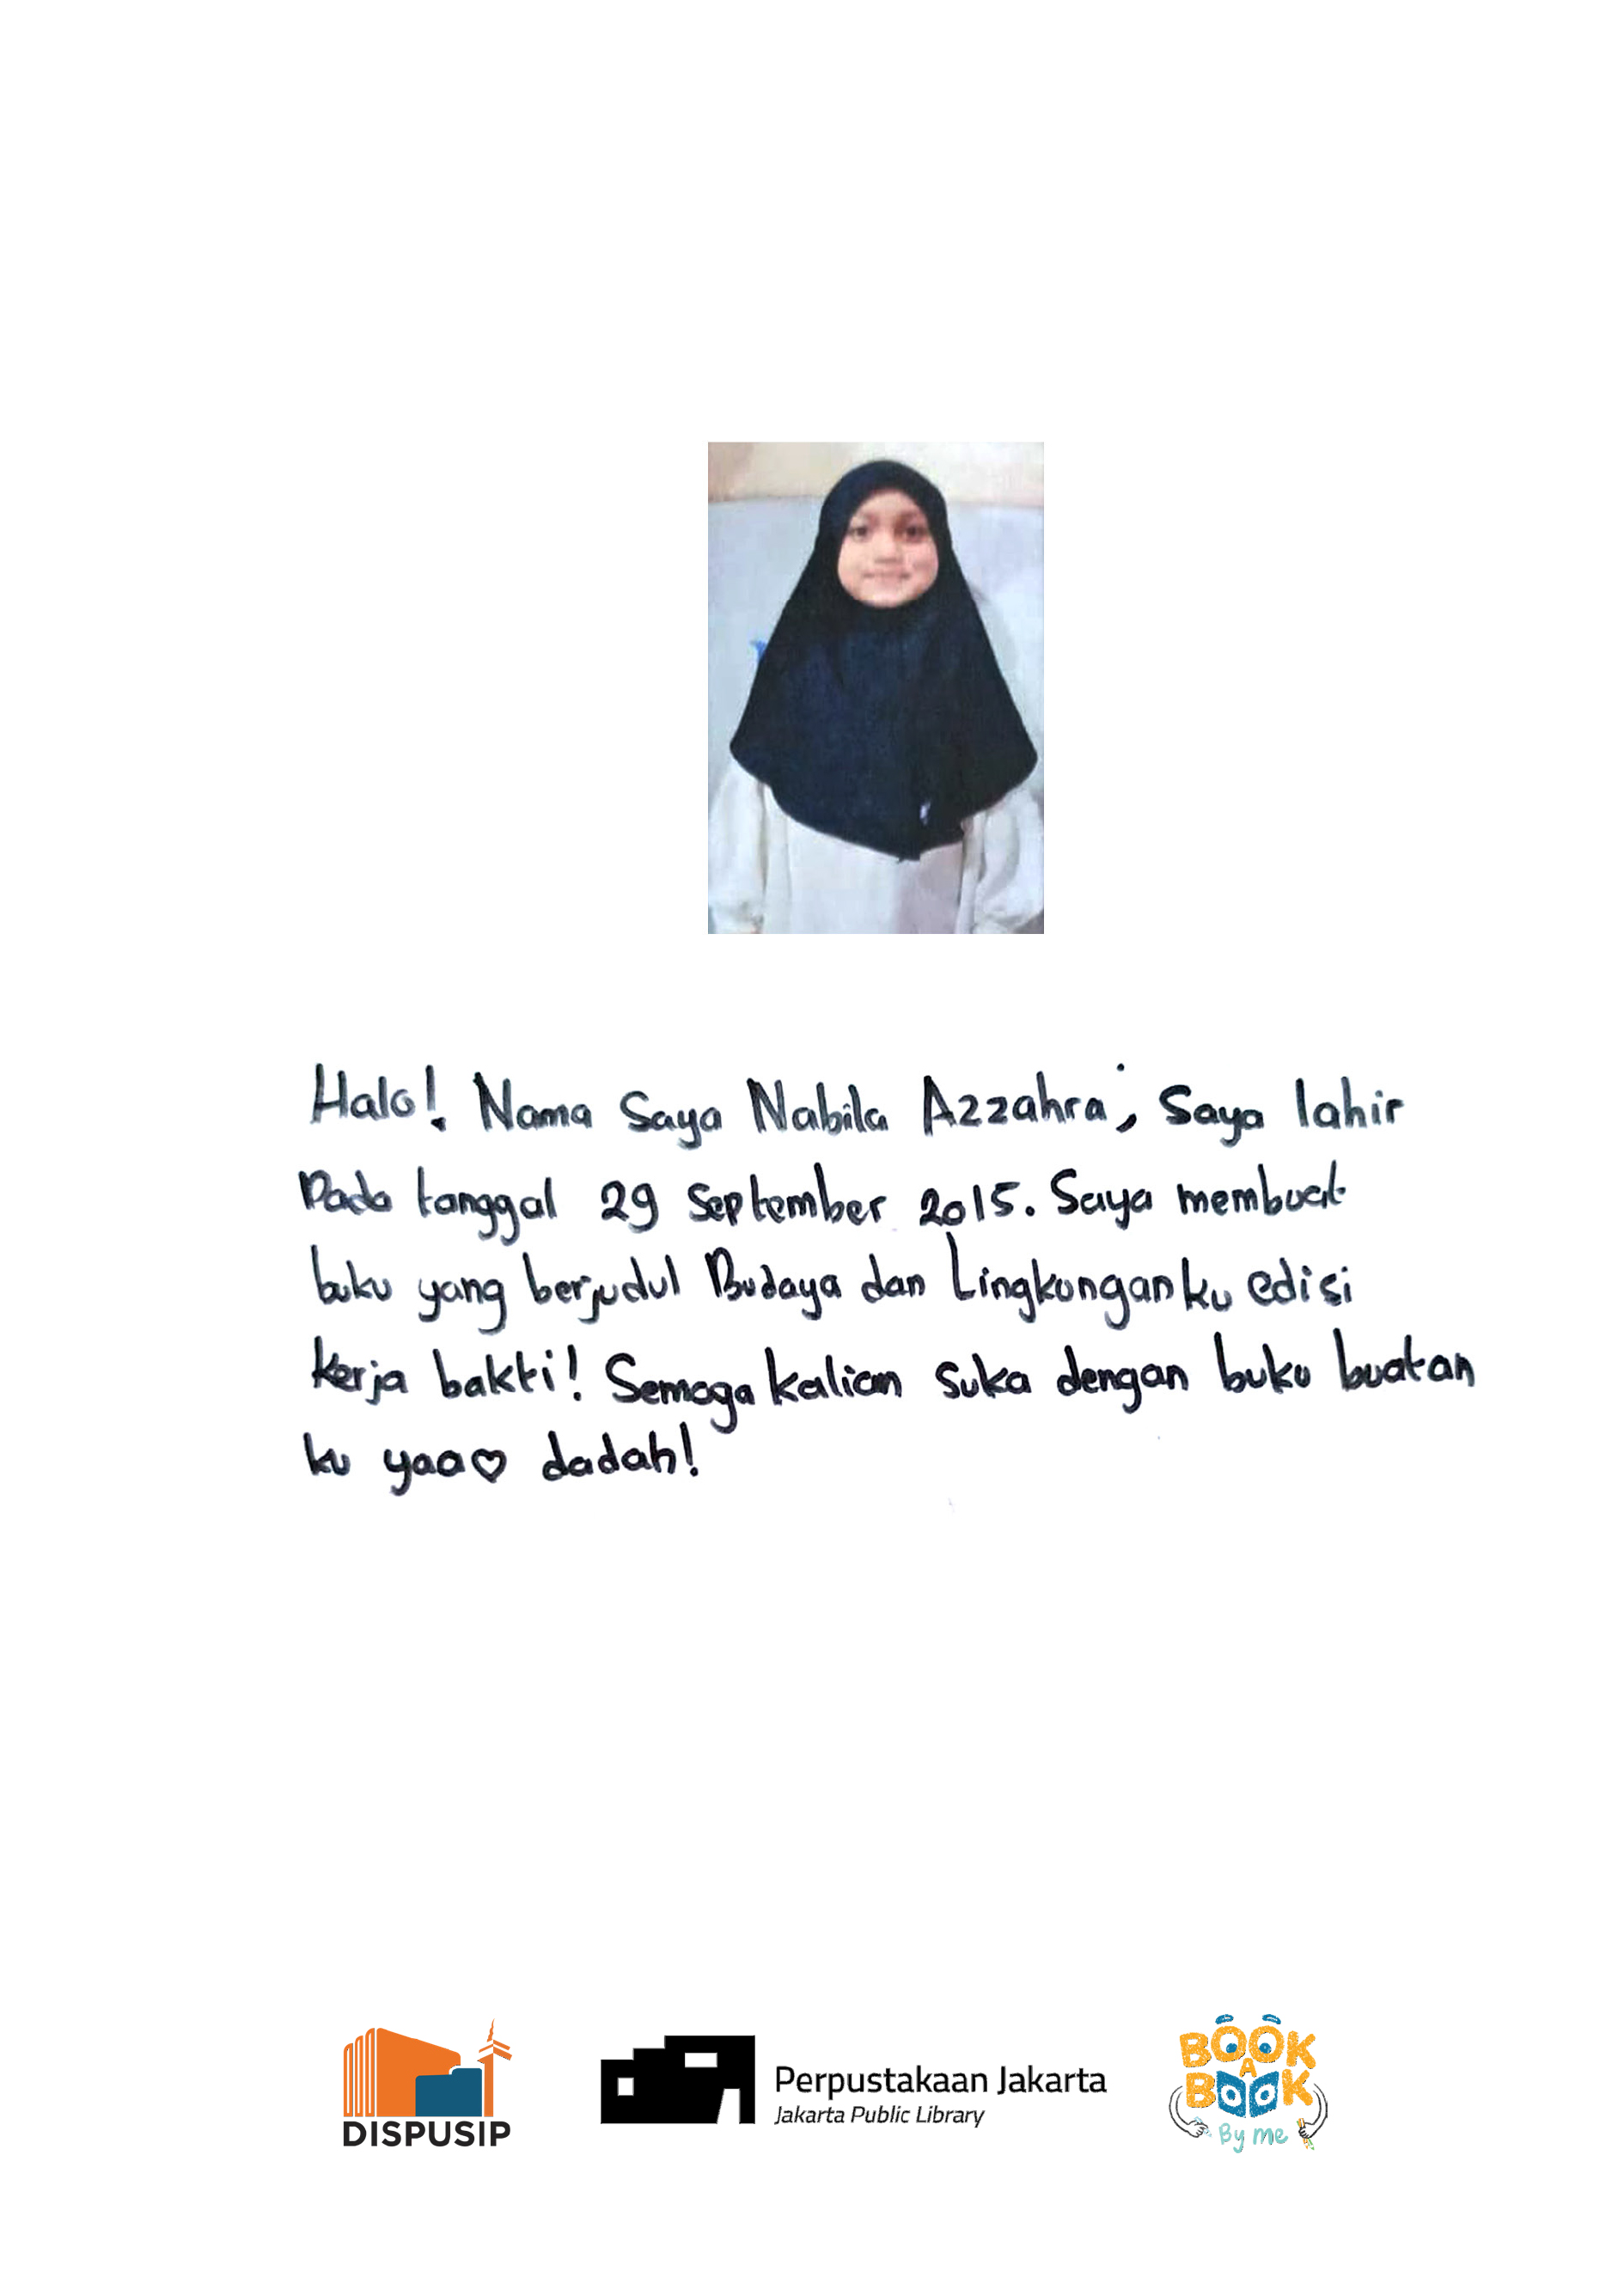 Halo! Nama saya Nabila Azzahra, saya lahir
Pada tanggal 29 september 2015. Saya membuat
buku yang berjudul Budaya dan Lingkunganku edisi
kerja bakti! Semoga kalian suka dengan buku buatan
ku yaa♡ dadah!
DISPUSIP
Perpustakaan Jakarta
Jakarta Public Library
BOOK
A
BOOK
By me